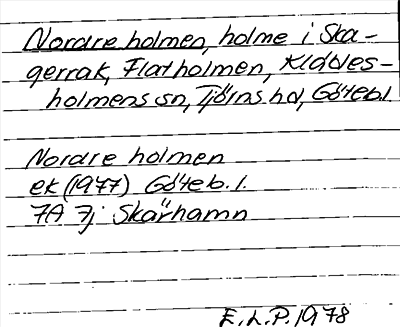 Nordre holmen, holme i Ska-
gerrak, Flatholmen, Klädes-
holmens sn, Tjörns hd, Göteb.l.
Nordre holmen
ek (1977) Göteb. l.
7A 7j Skärhamn
E. L. P. 1978